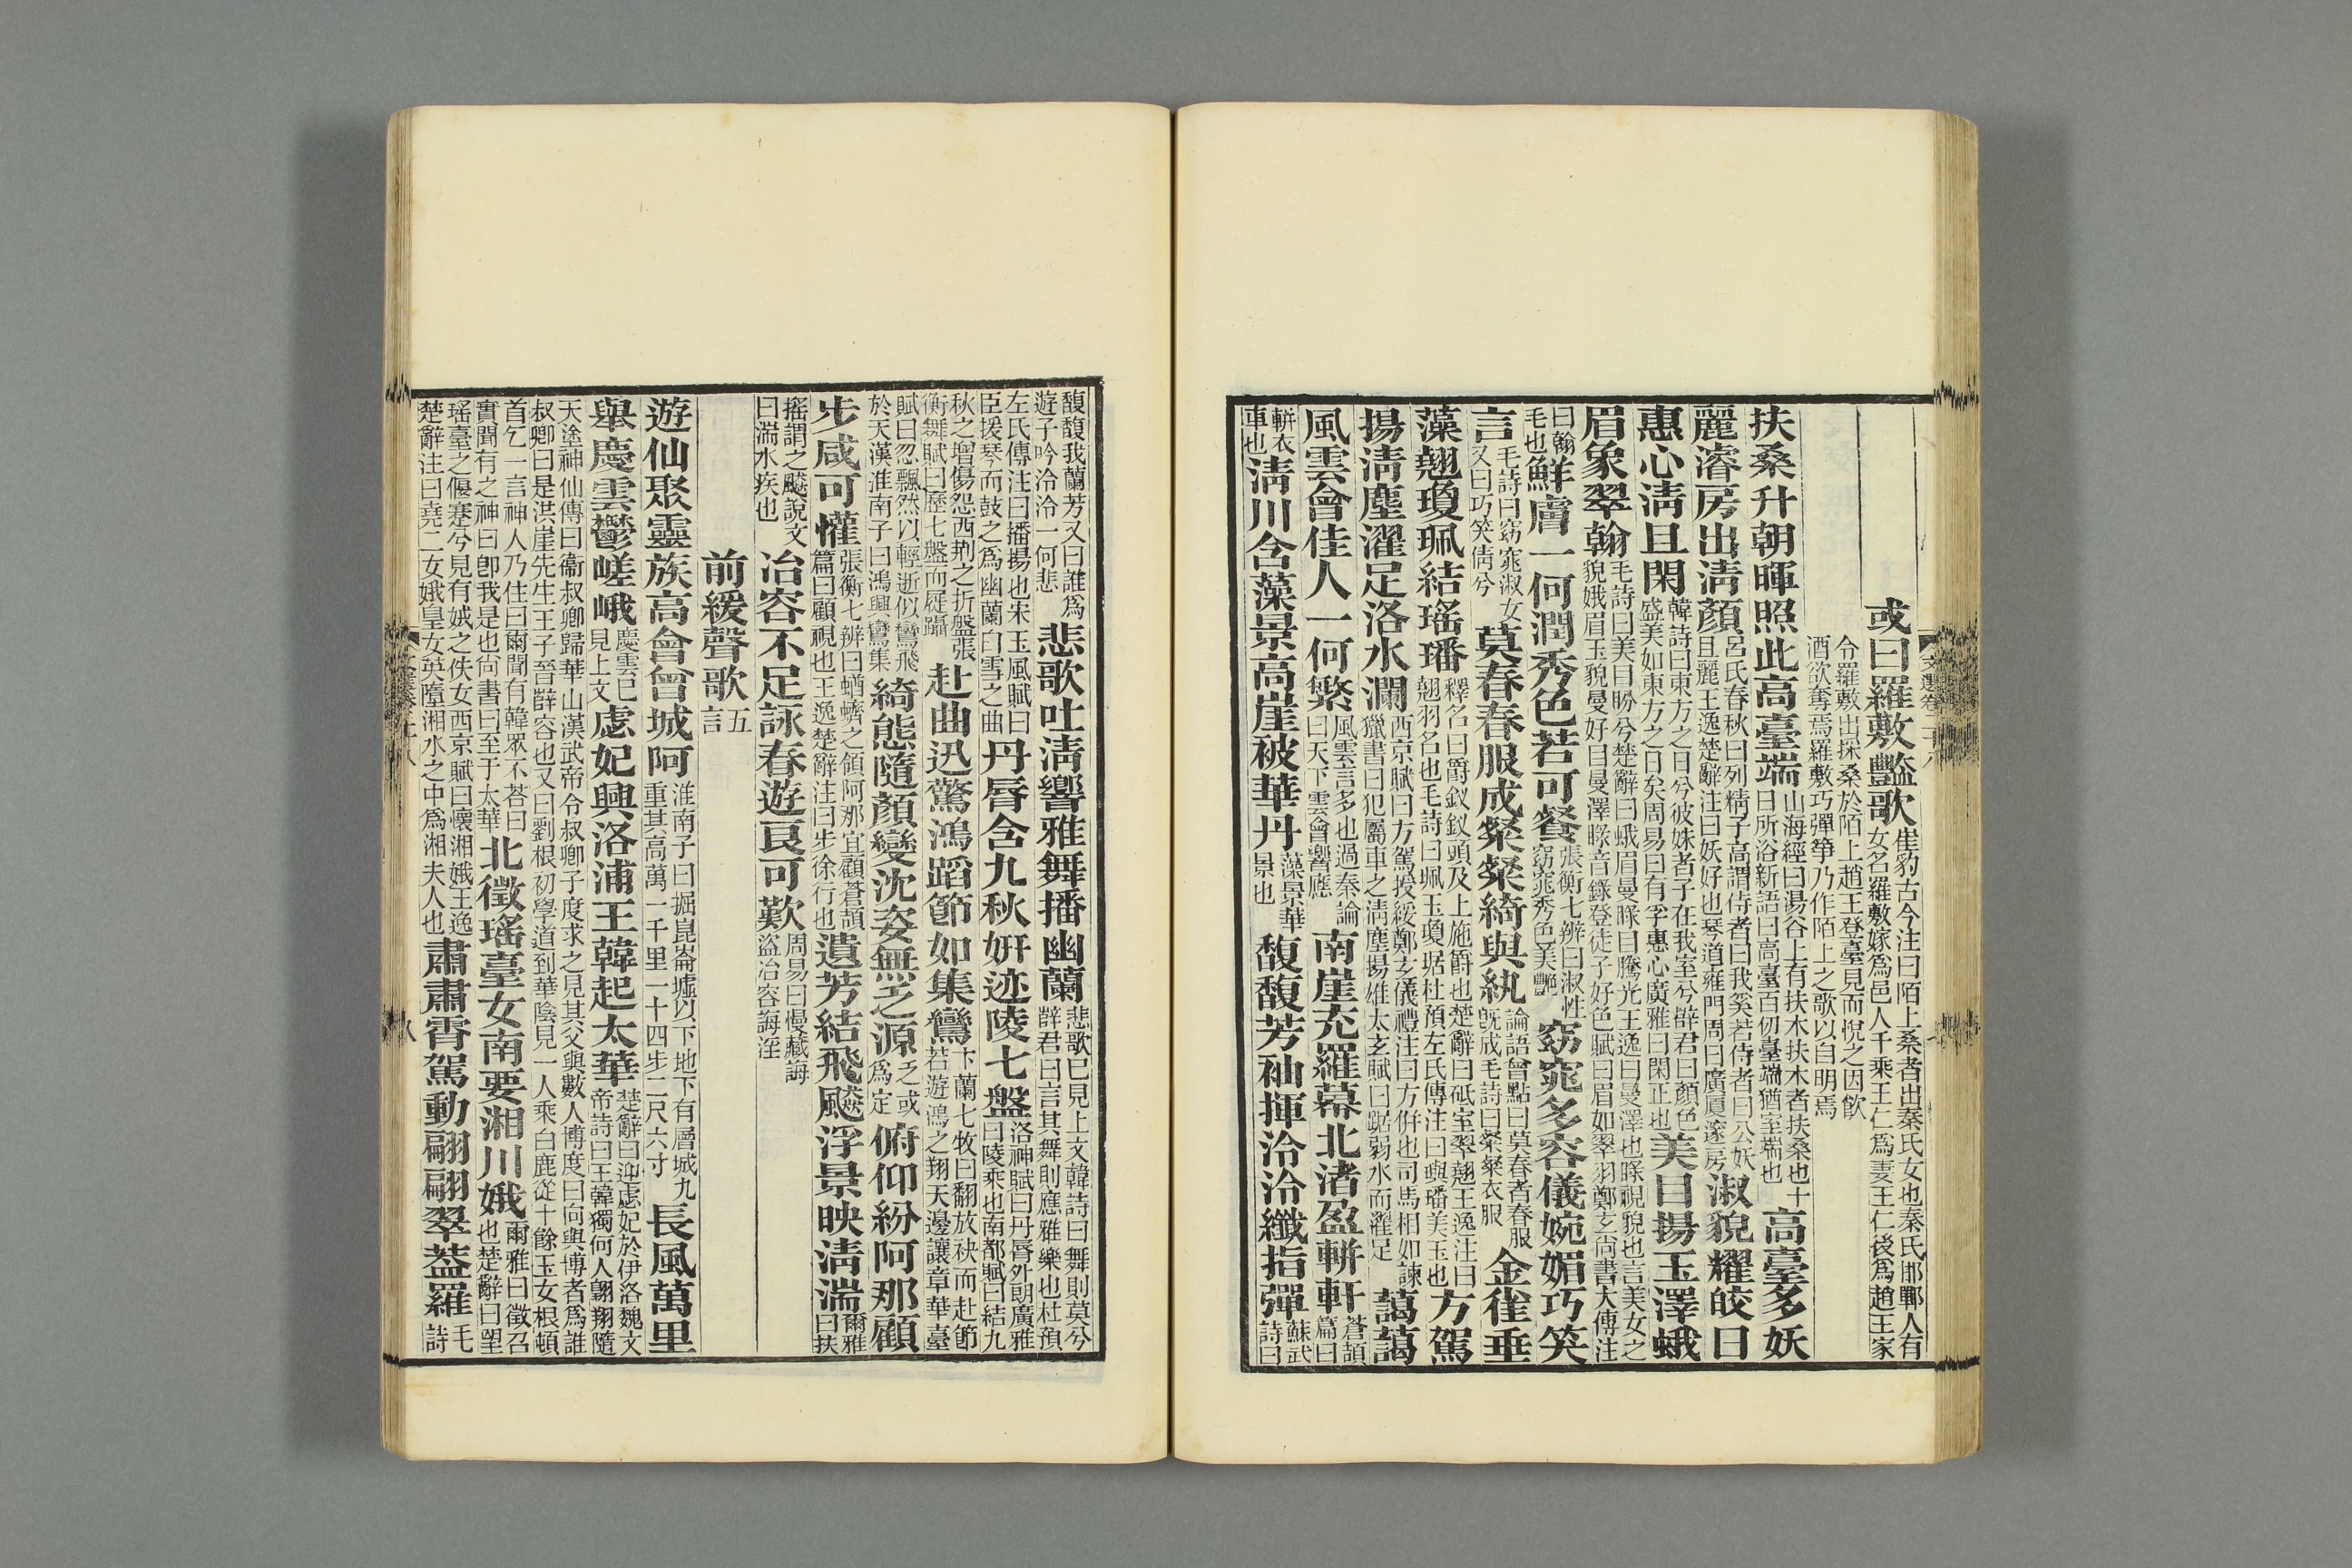 或曰羅敷豔歌崔豹古今注曰陌上桑者出秦氏女也秦氏邯鄲人有女名羅敷嫁爲邑人千乘王仁爲妻王仁後爲趙王家
令羅敷出採桑於陌上趙王登臺見而悅之因飮酒欲奪焉羅敷巧彈箏乃作陌上之歌以自明焉
扶桑升朝暉照此高臺端山海經曰湯谷上有扶木扶木者扶桑也十日所浴新語曰高臺百仞臺端猶室端也高臺多妖
麗濬房出淸顏呂氏春秋曰列精子高謂侍者曰我奚若侍者曰公妖且麗王逸楚辭注曰妖好也琴道雍門周曰廣厦邃房淑貌耀皎日
惠心淸且閑韓詩曰東方之日兮彼姝者子在我室兮辥君曰顏色盛美如東方之日矣周易曰有孚惠心廣雅曰閑正也美目揚玉澤蛾
眉象翠翰毛詩曰美目盼兮楚辭曰蛾眉曼睩目騰光王逸曰曼澤也睩視貌也言美女之貌娥眉玉貌曼好目曼澤睩音錄登徒子好色賦曰眉如翠羽鄭玄尙書大傳注
曰翰毛也鮮膚一何潤秀色若可餐張衡七辨曰淑性窈窕秀色美艷窈窕多容儀婉媚巧笑
言毛詩曰窈窕淑女又曰巧笑倩兮莫春春服成粲粲綺與紈論語曾點曰莫春者春服旣成毛詩曰粲粲衣服金雀垂
藻翹瓊珮結瑤璠釋名曰爵釵釵頭及上施爵也楚辭曰砥室翠翹王逸注曰翹羽名也毛詩曰珮玉瓊琚杜預左氏傳注曰璵璠美玉也方駕
揚淸塵濯足洛水瀾西京賦曰方駕授綏鄭玄儀禮注曰方倂也司馬相如諫獵書曰犯屬車之淸塵揚雄太玄賦曰踞弱水而濯足藹藹
風雲會佳人一何繁風雲言多也過秦論曰天下雲會響應南崖充羅幕北渚盈軿軒蒼頡篇曰
軿衣車也淸川含藻景高崖被華丹藻景華景也馥馥芳袖揮泠泠纖指彈蘇武詩曰
馥馥我蘭芳又曰誰爲遊子吟泠泠一何悲悲歌吐淸響雅舞播幽蘭悲歌已見上文韓詩曰舞則莫兮辥君曰言其舞則應雅樂也杜預
左氏傳注曰播揚也宋玉風賦曰臣援琴而鼓之爲幽蘭白雪之曲丹脣含九秋妍迹陵七盤洛神賦曰丹脣外朗廣雅曰陵乘也南都賦曰結九
秋之增傷怨西荆之折盤張衡舞賦曰歷七盤而屣躡赴曲迅驚鴻蹈節如集鸞卞蘭七牧曰翻放袂而赴節若遊鴻之翔天邊讓章華臺
賦曰忽飄然以輕逝似鸞飛於天漢淮南子曰鴻興鸞集綺態隨顏變沈姿無乏源乏或爲定俯仰紛阿那顧
步咸可懽張衡七辨曰蝤蠐之領阿那宜顧蒼頡篇曰顧視也王逸楚辭注曰步徐行也遺芳結飛飈浮景映淸湍爾雅曰扶
搖謂之飈說文曰湍水疾也冶容不足詠春遊良可歎周易曰慢藏誨盜冶容誨淫
前緩聲歌五言
遊仙聚靈族高會曾城阿淮南子曰掘崑崙墟以下地下有層城九重其高萬一千里一十四步二尺六寸長風萬里
舉慶雲鬱嵯峨慶雲已見上文虙妃興洛浦王韓起太華楚辭曰迎虙妃於伊洛魏文帝詩曰王韓獨何人翺翔隨
天塗神仙傳曰衞叔卿歸華山漢武帝令叔卿子度求之見其父與數人博度曰向與博者爲誰叔卿曰是洪崖先生王子晉辥容也又曰劉根初學道到華陰見一人乘白鹿從十餘玉女根頓
首乞一言神人乃住曰爾聞有韓眾不荅曰實聞有之神曰卽我是也尙書曰至于太華北徵瑤臺女南要湘川娥爾雅曰徵召也楚辭曰望
瑤臺之偃蹇兮見有娀之佚女西京賦曰懷湘娥王逸楚辭注曰堯二女娥皇女英墮湘水之中爲湘夫人也肅肅霄駕動翩翩翠葢羅毛詩